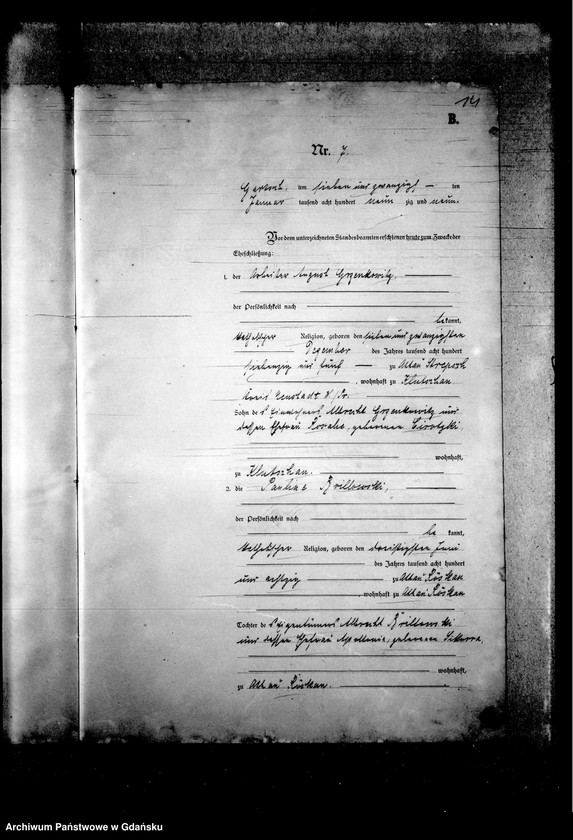 B.
Nr. 7.
am sieben und zwanzigsten ten
Januar tausend acht hundert neun zig und neun.
Vor dem unterzeichneten Standesbeamten erschienen heute zum Zwecke der
Eheschließung:
1. der Arbeiter August Grzenkowitz,
der Persönlichkeit nach
be kannt,
katholischer Religion, geboren den sieben und zwanzigsten
Dezember des Jahres tausend acht hundert
siebenzig und fünf zu Abbau
, wohnhaft zu Klutschau
Kreis Neustadt W/Pr.
Sohn de s Einwohners Albrecht Grzenkowitz und
dessen Ehefrau Rosalie, geborenen
wohnhaft,
zu Klutschau.
2. die Pauline Brillowski,
der Persönlichkeit nach
be kannt,
katholischer Religion, geboren den dreißigsten Juni
des Jahres tausend acht hundert
und achtzig zu Abbau
, wohnhaft zu Abbau
Tochter de s Eigentümers Albrecht Brillowski
und dessen Ehefrau Apollonia, geborenen Sikorra,
wohnhaft,
zu Abbau
Archiwum Państwowe w Gdańsku